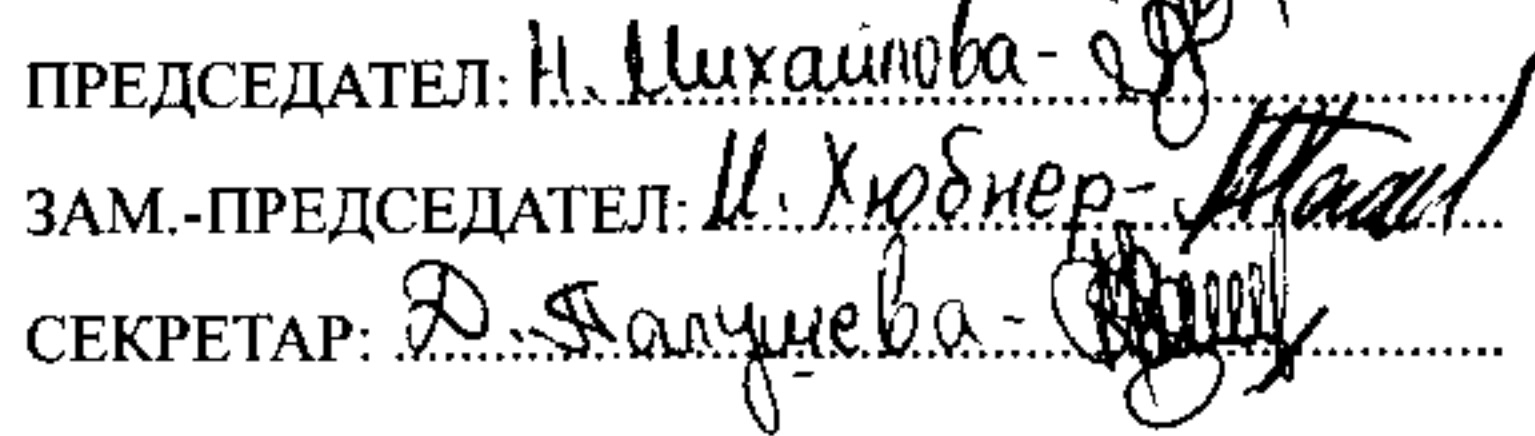 ПРЕДСЕДАТЕЛ: Н. Михайлова -
ЗАМ.-ПРЕДСЕДАТЕЛ: И. Хюбнер -
СЕКРЕТАР: Д. Палушева -